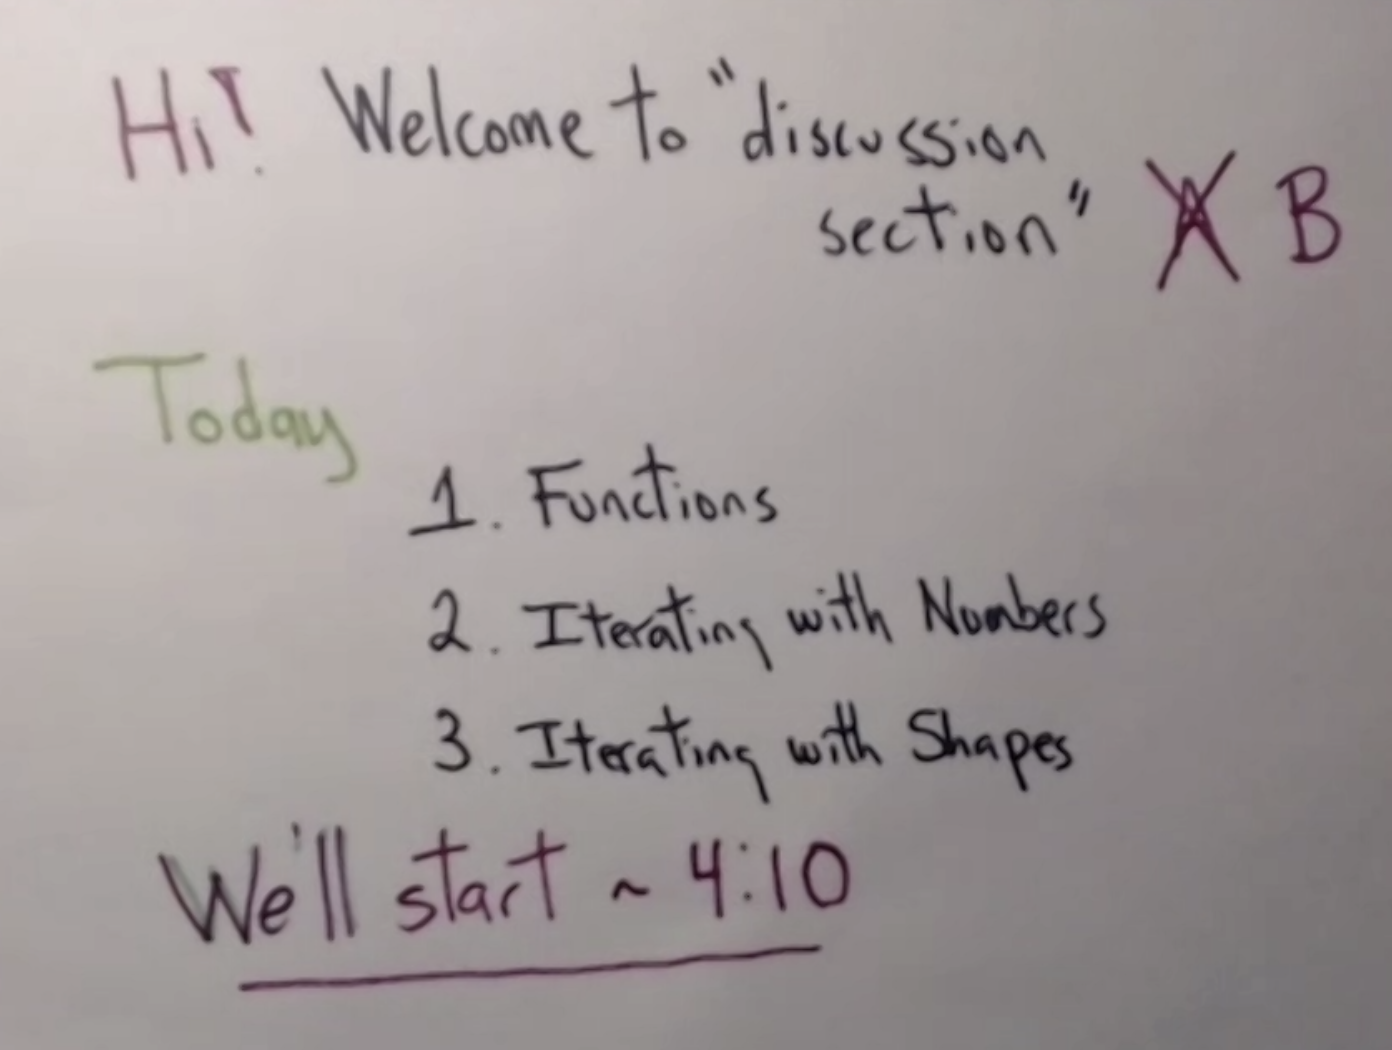 Hi! Welcome to "discussion
section" A B
Today
1. Functions
2. Iterating with Numbers
3. Iterating with Shapes
We'll start ~ 4:10